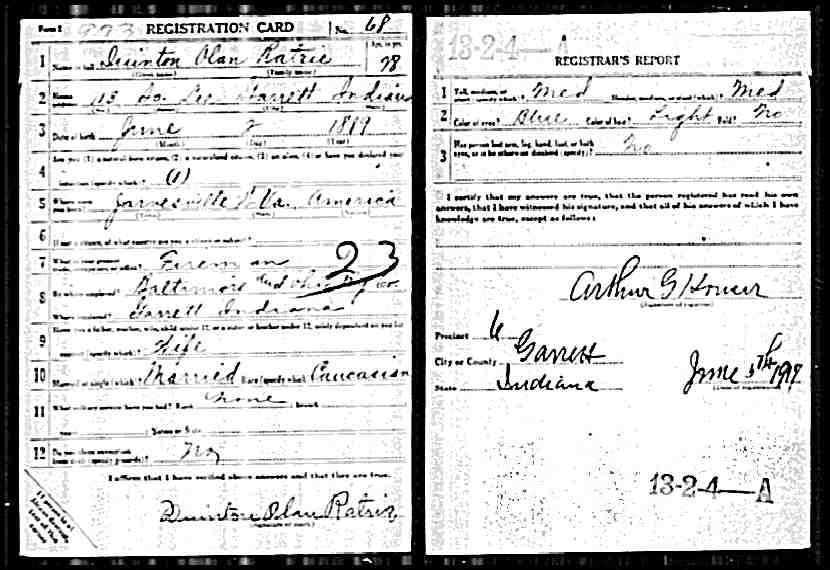 Form 1 993 REGISTRATION CARD No. 68
1 Name in full Quinton Olan Ratrie Age, in yrs. 28
(Given name) (Family name)
2 Home address Garrett Indiana
3 Date of birth June 2 1889
(Month) (Day) (Year)
4 Are you (1) a natural-born citizen, (2) a naturalized citizen, (3) an alien, (4) or have you declared your
intention (specify which)? (1)
5 Where were you born? W. Va. America
(Town) (State) (Nation)
6 If not a citizen, of what country are you a citizen or subject?
7 What is your present trade, occupation, or office? Fireman 23
8 By whom employed? Baltimore and Ohio Ry Co.
Where employed? Garrett Indiana
9 Have you a father, mother, wife, child under 12, or a sister or brother under 12, solely dependent on you for
support (specify which)? Wife
10 Married or single (which)? Married Race (specify which)? Caucasian
11 What military service have you had? Rank None branch
years Nation or State
12 Do you claim exemption from draft (specify grounds)? No
I affirm that I have verified above answers and that they are true.
Quinton Olan Ratrie
(Signature or mark)
13-2-4-A
REGISTRAR'S REPORT
1 Tall, medium, or short (specify which)? Med Slender, medium, or stout (which)? Med
2 Color of eyes? Blue Color of hair? Light Bald? No
3 Has person lost arm, leg, hand, foot, or both
eyes, or is he otherwise disabled (specify)? No
I certify that my answers are true, that the person registered has read his own
answers, that I have witnessed his signature, and that all of his answers of which I have
knowledge are true, except as follows:
Arthur G
(Signature of registrar)
Precinct 6
City or County Garrett
State Indiana June 5th 1917
(Date of registration)
13-2-4-A